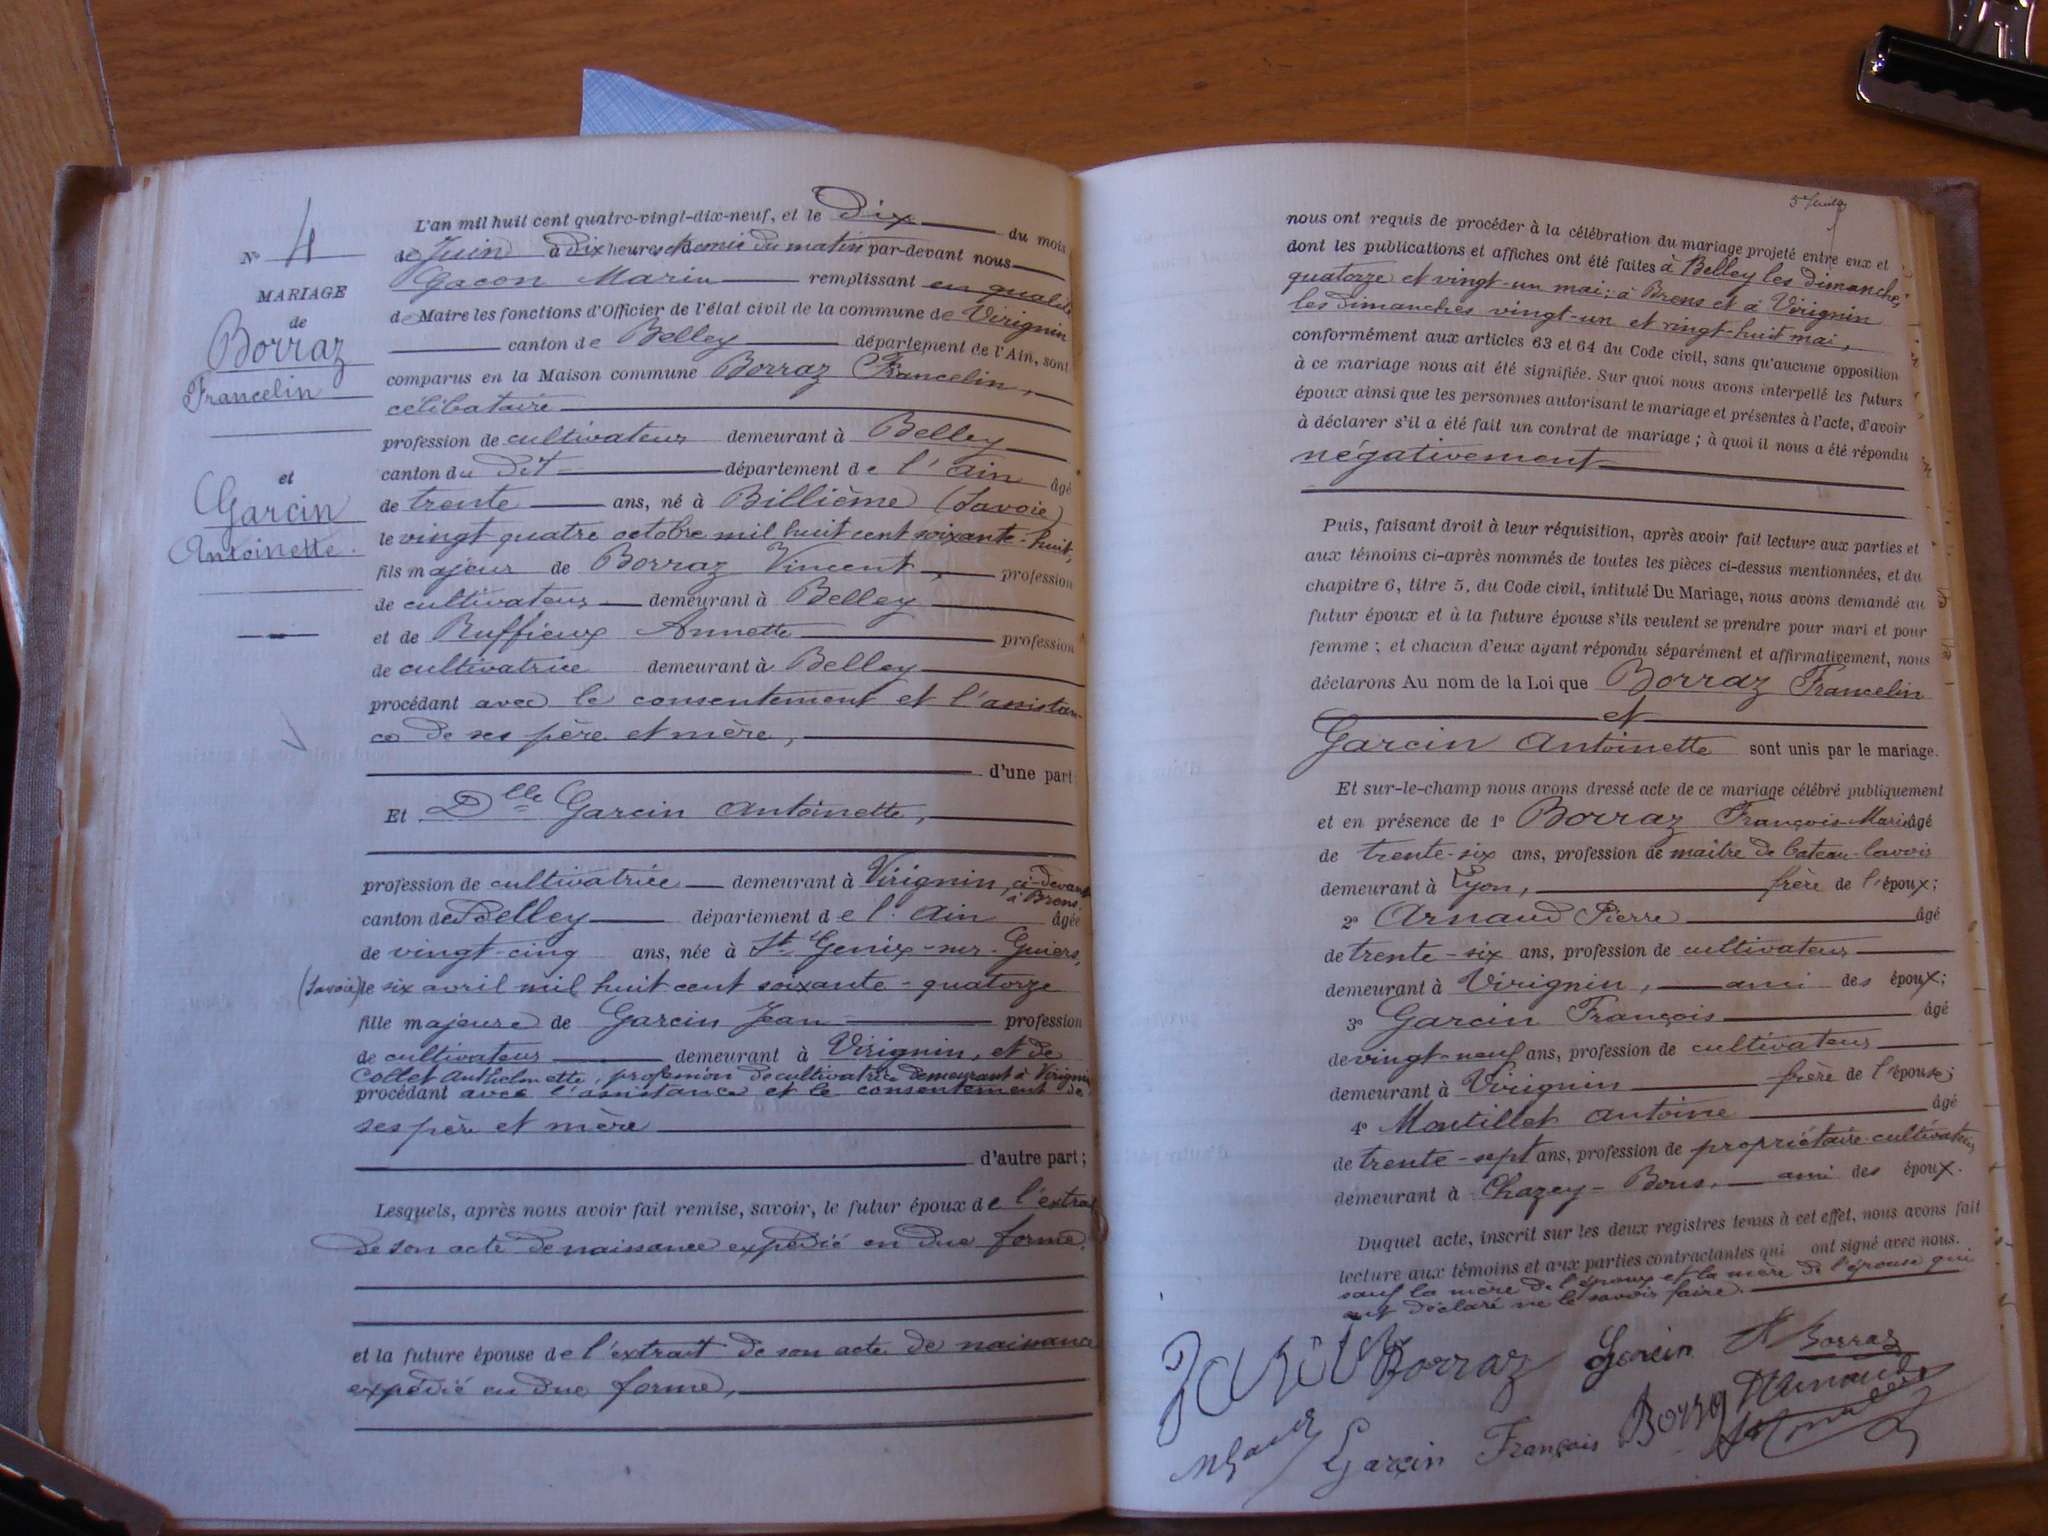 N° 4
MARIAGE
de
Borraz
Francelin
et
Garcin
Antoinette.
L'an mil huit cent quatre-vingt-dix-neuf, et le Dix du mois
de Juin à dix heures et demie du matin par-devant nous
Gacon Marin remplissant en qualité
de Maire les fonctions d'Officier de l'état civil de la commune de Virignin
canton de Belley département de l'Ain, sont
comparus en la Maison commune Borraz Francelin,
célibataire
profession de cultivateur demeurant à Belley
canton du dit département de l'ain âgé
de trente ans, né à Billième (Savoie)
le vingt quatre octobre mil huit cent soixante-huit,
fils majeur de Borraz Vincent, profession
de cultivateur demeurant à Belley
et de Ruffieux Annette profession
de cultivatrice demeurant à Belley
procédant avec le consentement et l'assistan-
ce de ses père et mère,
d'une part
Et Dlle Garcin Antoinette,
profession de cultivatrice demeurant à Virignin, ci-devant
à Brens.
canton de Belley département de l'Ain âgée
de vingt-cinq ans, née à St Genix-sur-Guiers,
(Savoie) le six avril mil huit cent soixante-quatorze
fille majeure de Garcin Jean profession
de cultivateur demeurant à Virignin, et de
Collet Anthelmette, profession de cultivatrice demeurant à Virignin
procédant avec l'assistance et le consentement de
ses père et mère
d'autre part ;
Lesquels, après nous avoir fait remise, savoir, le futur époux de l'extrait
de son acte de naissance expédié en due forme.
et la future épouse de l'extrait de son acte de naissance
expédié en due forme,
nous ont requis de procéder à la célébration du mariage projeté entre eux et
dont les publications et affiches ont été faites à Belley les dimanches
quatorze et vingt-un mai; à Brens et à Virignin
les dimanches vingt-un et vingt-huit mai,
conformément aux articles 63 et 64 du Code civil, sans qu'aucune opposition
à ce mariage nous ait été signifiée. Sur quoi nous avons interpellé les futurs
époux ainsi que les personnes autorisant le mariage et présentes à l'acte, d'avoir
à déclarer s'il a été fait un contrat de mariage ; à quoi il nous a été répondu
négativement
Puis, faisant droit à leur réquisition, après avoir fait lecture aux parties et
aux témoins ci-après nommés de toutes les pièces ci-dessus mentionnées, et du
chapitre 6, titre 5, du Code civil, intitulé Du Mariage, nous avons demandé au
futur époux et à la future épouse s'ils veulent se prendre pour mari et pour
femme ; et chacun d'eux ayant répondu séparément et affirmativement, nous
déclarons Au nom de la Loi que Borraz Francelin
et
Garcin Antoinette sont unis par le mariage.
Et sur-le-champ nous avons dressé acte de ce mariage célébré publiquement
et en présence de 1° Borraz François-Marie âgé
de trente-six ans, profession de maître de bateau-lavoir
demeurant à Lyon, frère de l'époux;
2° Arnaud Pierre âgé
de trente-six ans, profession de cultivateur
demeurant à Virignin, ami des époux;
3° Garcin François âgé
de vingt-neuf ans, profession de cultivateur
demeurant à Virignin frère de l'épouse;
4° Montillet Antoine âgé
de trente-sept ans, profession de propriétaire-cultivateur
demeurant à Chazey-Bons, ami des époux.
Duquel acte, inscrit sur les deux registres tenus à cet effet, nous avons fait
lecture aux témoins et aux parties contractantes qui ont signé avec nous.
sauf la mère de l'époux et la mère de l'épouse qui
ont déclaré ne le savoir faire.
Borraz Garcin Borraz
Garcin François Arnaud